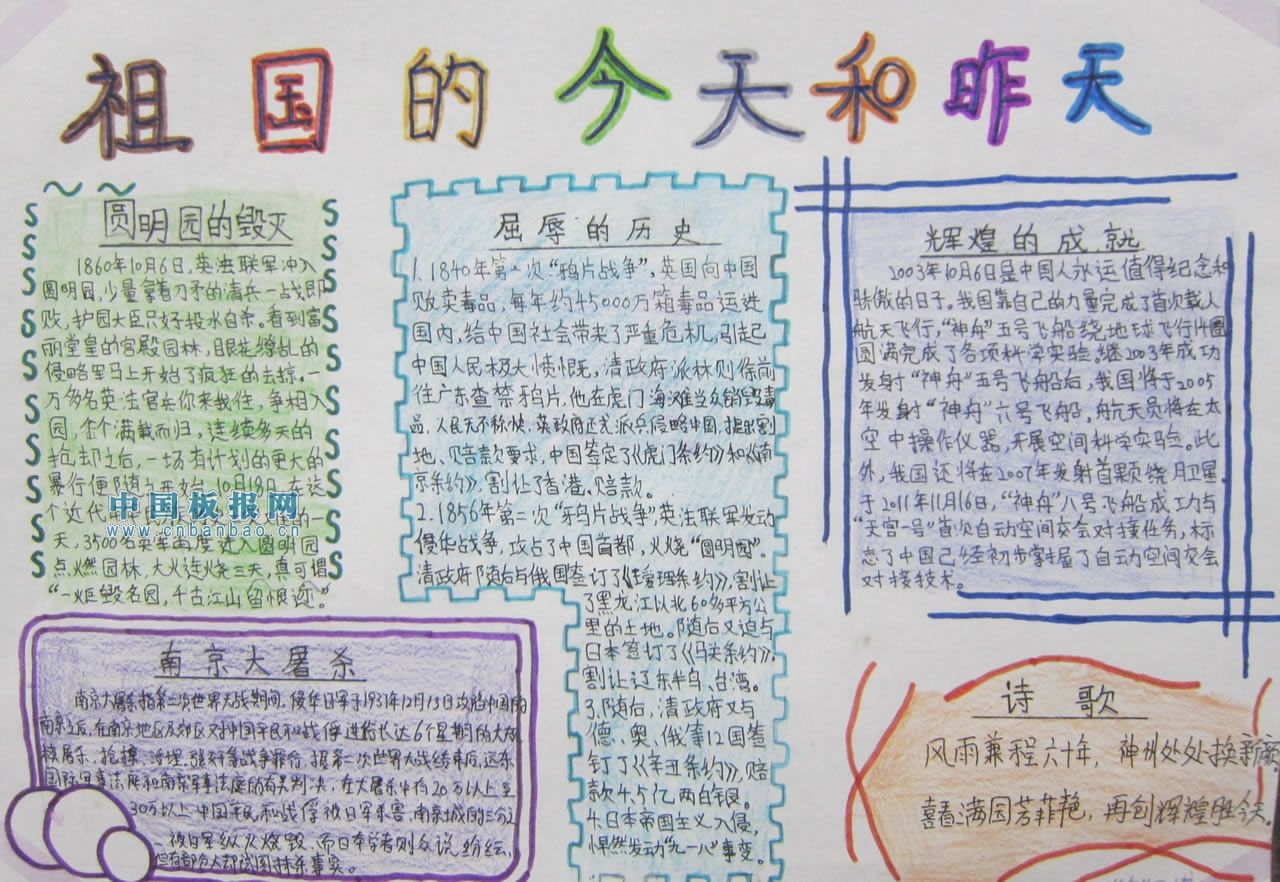 祖国的今天和昨天
圆明园的毁灭
1860年10月6日,英法联军冲入
圆明园,少量拿着刀矛的清兵一战即
败,护园大臣只好投水自杀。看到富
丽堂皇的宫殿园林,眼花缭乱的
侵略里马上开始了疯狂的去掠。一
万多名英法官兵你来我往,争相入
园,个个满载而归,连续多天的
抢却之后,一场有计划的更大的
暴行便随之开始,10月18日,在这
个近代
天,3500名英军再度进入圆明园
点燃园林,大火连烧三天,真可谓
“一炬毁名园,千古江山留恨迹”。
中国板报网
www.cnbanbao.cn
南京大屠杀
南京大屠杀指第二次世界大战期间,侵华日军于1937年12月13日攻陷中国的
南京之后,在南京地区及郊区对中国平民和战俘进行长达6个星期的大规
模屠杀、抢掠、活埋、强奸等战争罪行,据第二次世界大战结束后,远东
国际军事法庭和南京军事法庭的有关判决,在大屠杀中有20万以上至
30万以上中国平民和战俘被日军杀害,南京城的三分之
一被日军纵火烧毁,而日本学者则众说纷纭,
但有部分人却试图抹杀事实。
屈辱的历史
1.1840年第一次“鸦片战争”,英国向中国
贩卖毒品,每年约45000万箱毒品运进
国内,给中国社会带来了严重危机,引起
中国人民极大愤恨既,清政府派林则徐前
往广东查禁鸦片,他在虎门海滩当众销毁毒
品,人民无不称快,英政府还派兵侵略中国,提出割
地、赔款要求,中国签定了《虎门条约》和《南
京条约》,割让了香港、赔款。
2.1856年第二次“牙鸟片战争”,英法联军发动
侵华战争,攻占了中国首都,火烧“圆明园”。
清政府随后与俄国签订了《瑷珲条约》,割让
了黑龙江以北60多平方公
里的土地。随后又迫与
日本签订了《马关条约》,
割让辽东半岛、台湾。
3.随后,清政府又与
德、奥、俄等12国签
订了《辛丑条约》,赔
款4.5亿两白银。
4.日本帝国主义入侵,
悍然发动“九一八”事变。
辉煌的成就
2003年10月6日是中国人永运值得纪念和
骄傲的日子。我国靠自己的力量完成了首次载人
航天飞行,“神舟”五号飞船绕地球飞行14圈
圆满完成了各项科学实验。继2003年成功
发射“神舟”五号飞船后,我国将于2005
年发射“神舟”六号飞船,航天员将在太
空中操作仪器,开展空间科学实验。此
外,我国还将在2007年发射首颗绕月卫星。
于2011年11月16日,“神舟”八号飞船成功与
“天宫一号”首次自动空间交会对接任务,标
志了中国已经初步掌握了自动空间交会
对接技术。
诗歌
风雨兼程六十年,神州处处换新颜
喜看满园芳菲艳,再创辉煌胜今天。